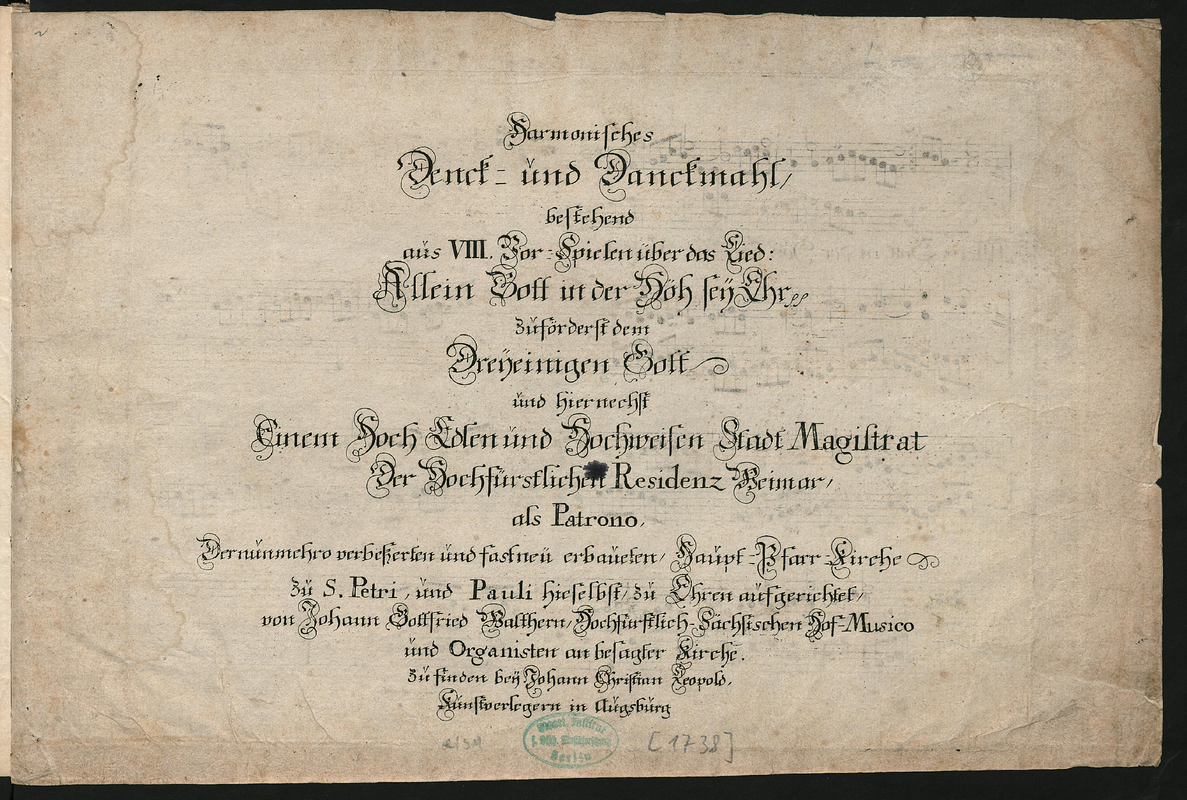 Harmonisches
Denck- und Danckmahl,
bestehend
aus VIII. Vor-Spielen über das Lied:
Allein Gott in der Höh seÿ Ehr
zuförderst dem
Dreÿeinigen Gott
und hiernechst
Einem Hoch Edlen und Hochweisen Stadt Magistrat
Der Hochfürstlichen Residenz Weimar,
als Patrono,
Der nunmehro verbeßerten und fast neu erbaueten, Haupt-Pfarr-Kirche
zu S. Petri, und Pauli hieselbst, zu Ehren aufgerichtet,
von Johann Gottfried Walthern, Hochfürstlich-Sächsischen Hof-Musico
und Organisten an besagter Kirche.
Zu finden beÿ Johann Christian Leopold,
Kunstverlegern in Augsburg
Berlin
[1738]